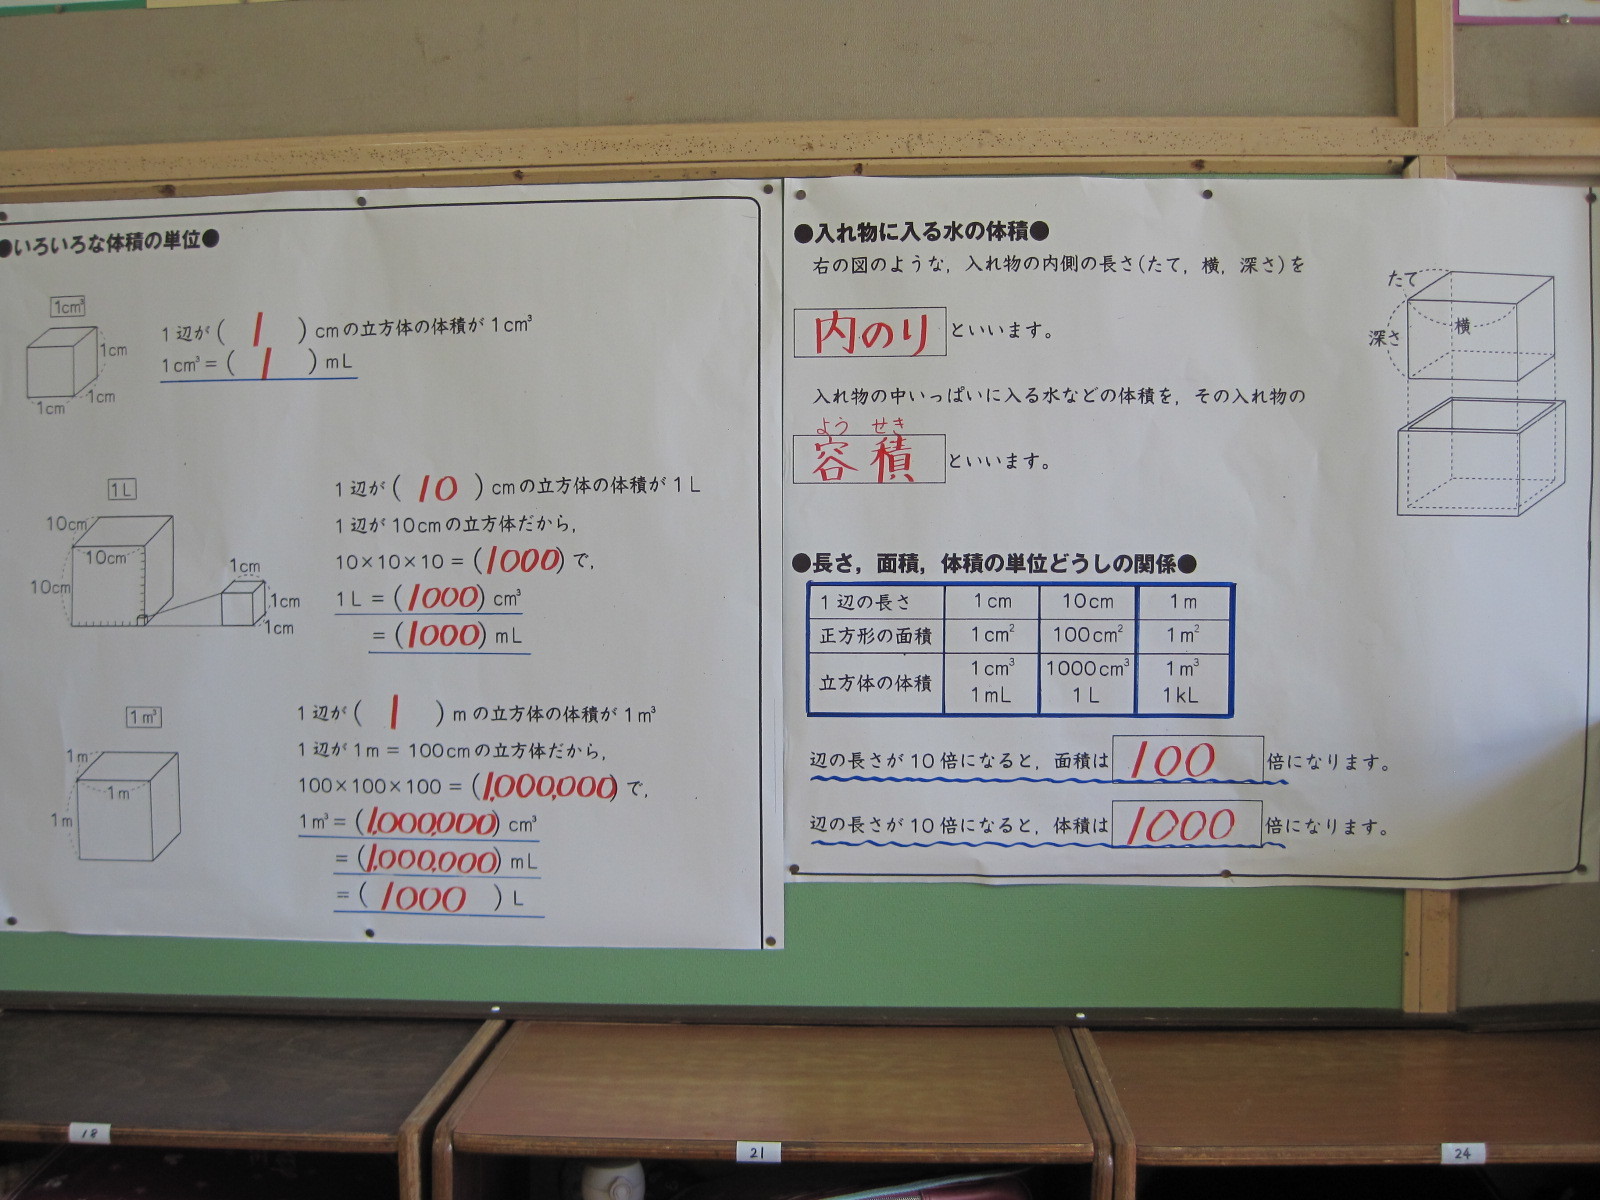 ●いろいろな体積の単位●
1cm³
1cm
1cm
1cm
1辺が( 1 )cmの立方体の体積が1cm³
1cm³=( 1 )mL
1L
10cm
10cm
10cm
1cm
1cm
1cm
1辺が( 10 )cmの立方体の体積が1L
1辺が10cmの立方体だから,
10×10×10=(1000)で,
1L=(1000)cm³
=(1000)mL
1m³
1m
1m
1m
1辺が( 1 )mの立方体の体積が1m³
1辺が1m=100cmの立方体だから,
100×100×100=(1,000,000)で,
1m³=(1,000,000)cm³
=(1,000,000)mL
=( 1000 )L
●入れ物に入る水の体積●
右の図のような,入れ物の内側の長さ(たて,横,深さ)を
内のり といいます。
入れ物の中いっぱいに入る水などの体積を,その入れ物の
よう せき
容積 といいます。
たて
横
深さ
●長さ,面積,体積の単位どうしの関係●
1辺の長さ 1cm 10cm 1m
正方形の面積 1cm² 100cm² 1m²
立方体の体積 1cm³ 1000cm³ 1m³
1mL 1L 1kL
辺の長さが10倍になると,面積は 100 倍になります。
辺の長さが10倍になると,体積は 1000 倍になります。
18
21
24